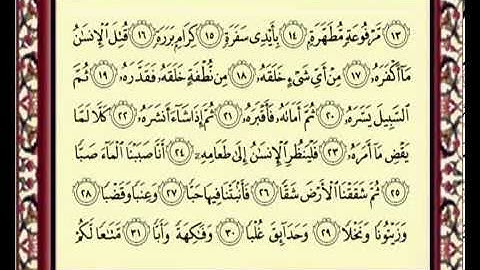 ﴿١٣﴾ مَّرْفُوعَةٍ مُّطَهَّرَةٍۭ ﴿١٤﴾ بِأَيْدِى سَفَرَةٍ ﴿١٥﴾ كِرَامٍۭ بَرَرَةٍ ﴿١٦﴾ قُتِلَ ٱلْإِنسَٰنُ
مَآ أَكْفَرَهُۥ ﴿١٧﴾ مِنْ أَىِّ شَىْءٍ خَلَقَهُۥ ﴿١٨﴾ مِن نُّطْفَةٍ خَلَقَهُۥ فَقَدَّرَهُۥ ﴿١٩﴾ ثُمَّ
ٱلسَّبِيلَ يَسَّرَهُۥ ﴿٢٠﴾ ثُمَّ أَمَاتَهُۥ فَأَقْبَرَهُۥ ﴿٢١﴾ ثُمَّ إِذَا شَآءَ أَنشَرَهُۥ ﴿٢٢﴾ كَلَّا لَمَّا
يَقْضِ مَآ أَمَرَهُۥ ﴿٢٣﴾ فَلْيَنظُرِ ٱلْإِنسَٰنُ إِلَىٰ طَعَامِهِۦٓ ﴿٢٤﴾ أَنَّا صَبَبْنَا ٱلْمَآءَ صَبًّا
﴿٢٥﴾ ثُمَّ شَقَقْنَا ٱلْأَرْضَ شَقًّا ﴿٢٦﴾ فَأَنۢبَتْنَا فِيهَا حَبًّا ﴿٢٧﴾ وَعِنَبًا وَقَضْبًا ﴿٢٨﴾
وَزَيْتُونًا وَنَخْلًا ﴿٢٩﴾ وَحَدَآئِقَ غُلْبًا ﴿٣٠﴾ وَفَٰكِهَةً وَأَبًّا ﴿٣١﴾ مَّتَٰعًا لَّكُمْ